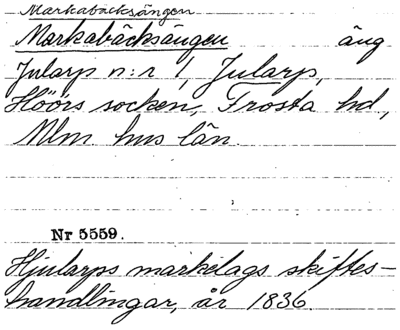 Markabäcksängen
Markabäcksängen äng
Jularp n:r 1, Jularp,
Höörs socken, Frosta hd,
Mlm. hus län.
Nr 5559.
Hjularps markelags skiftes-
handlingar, år 1836.